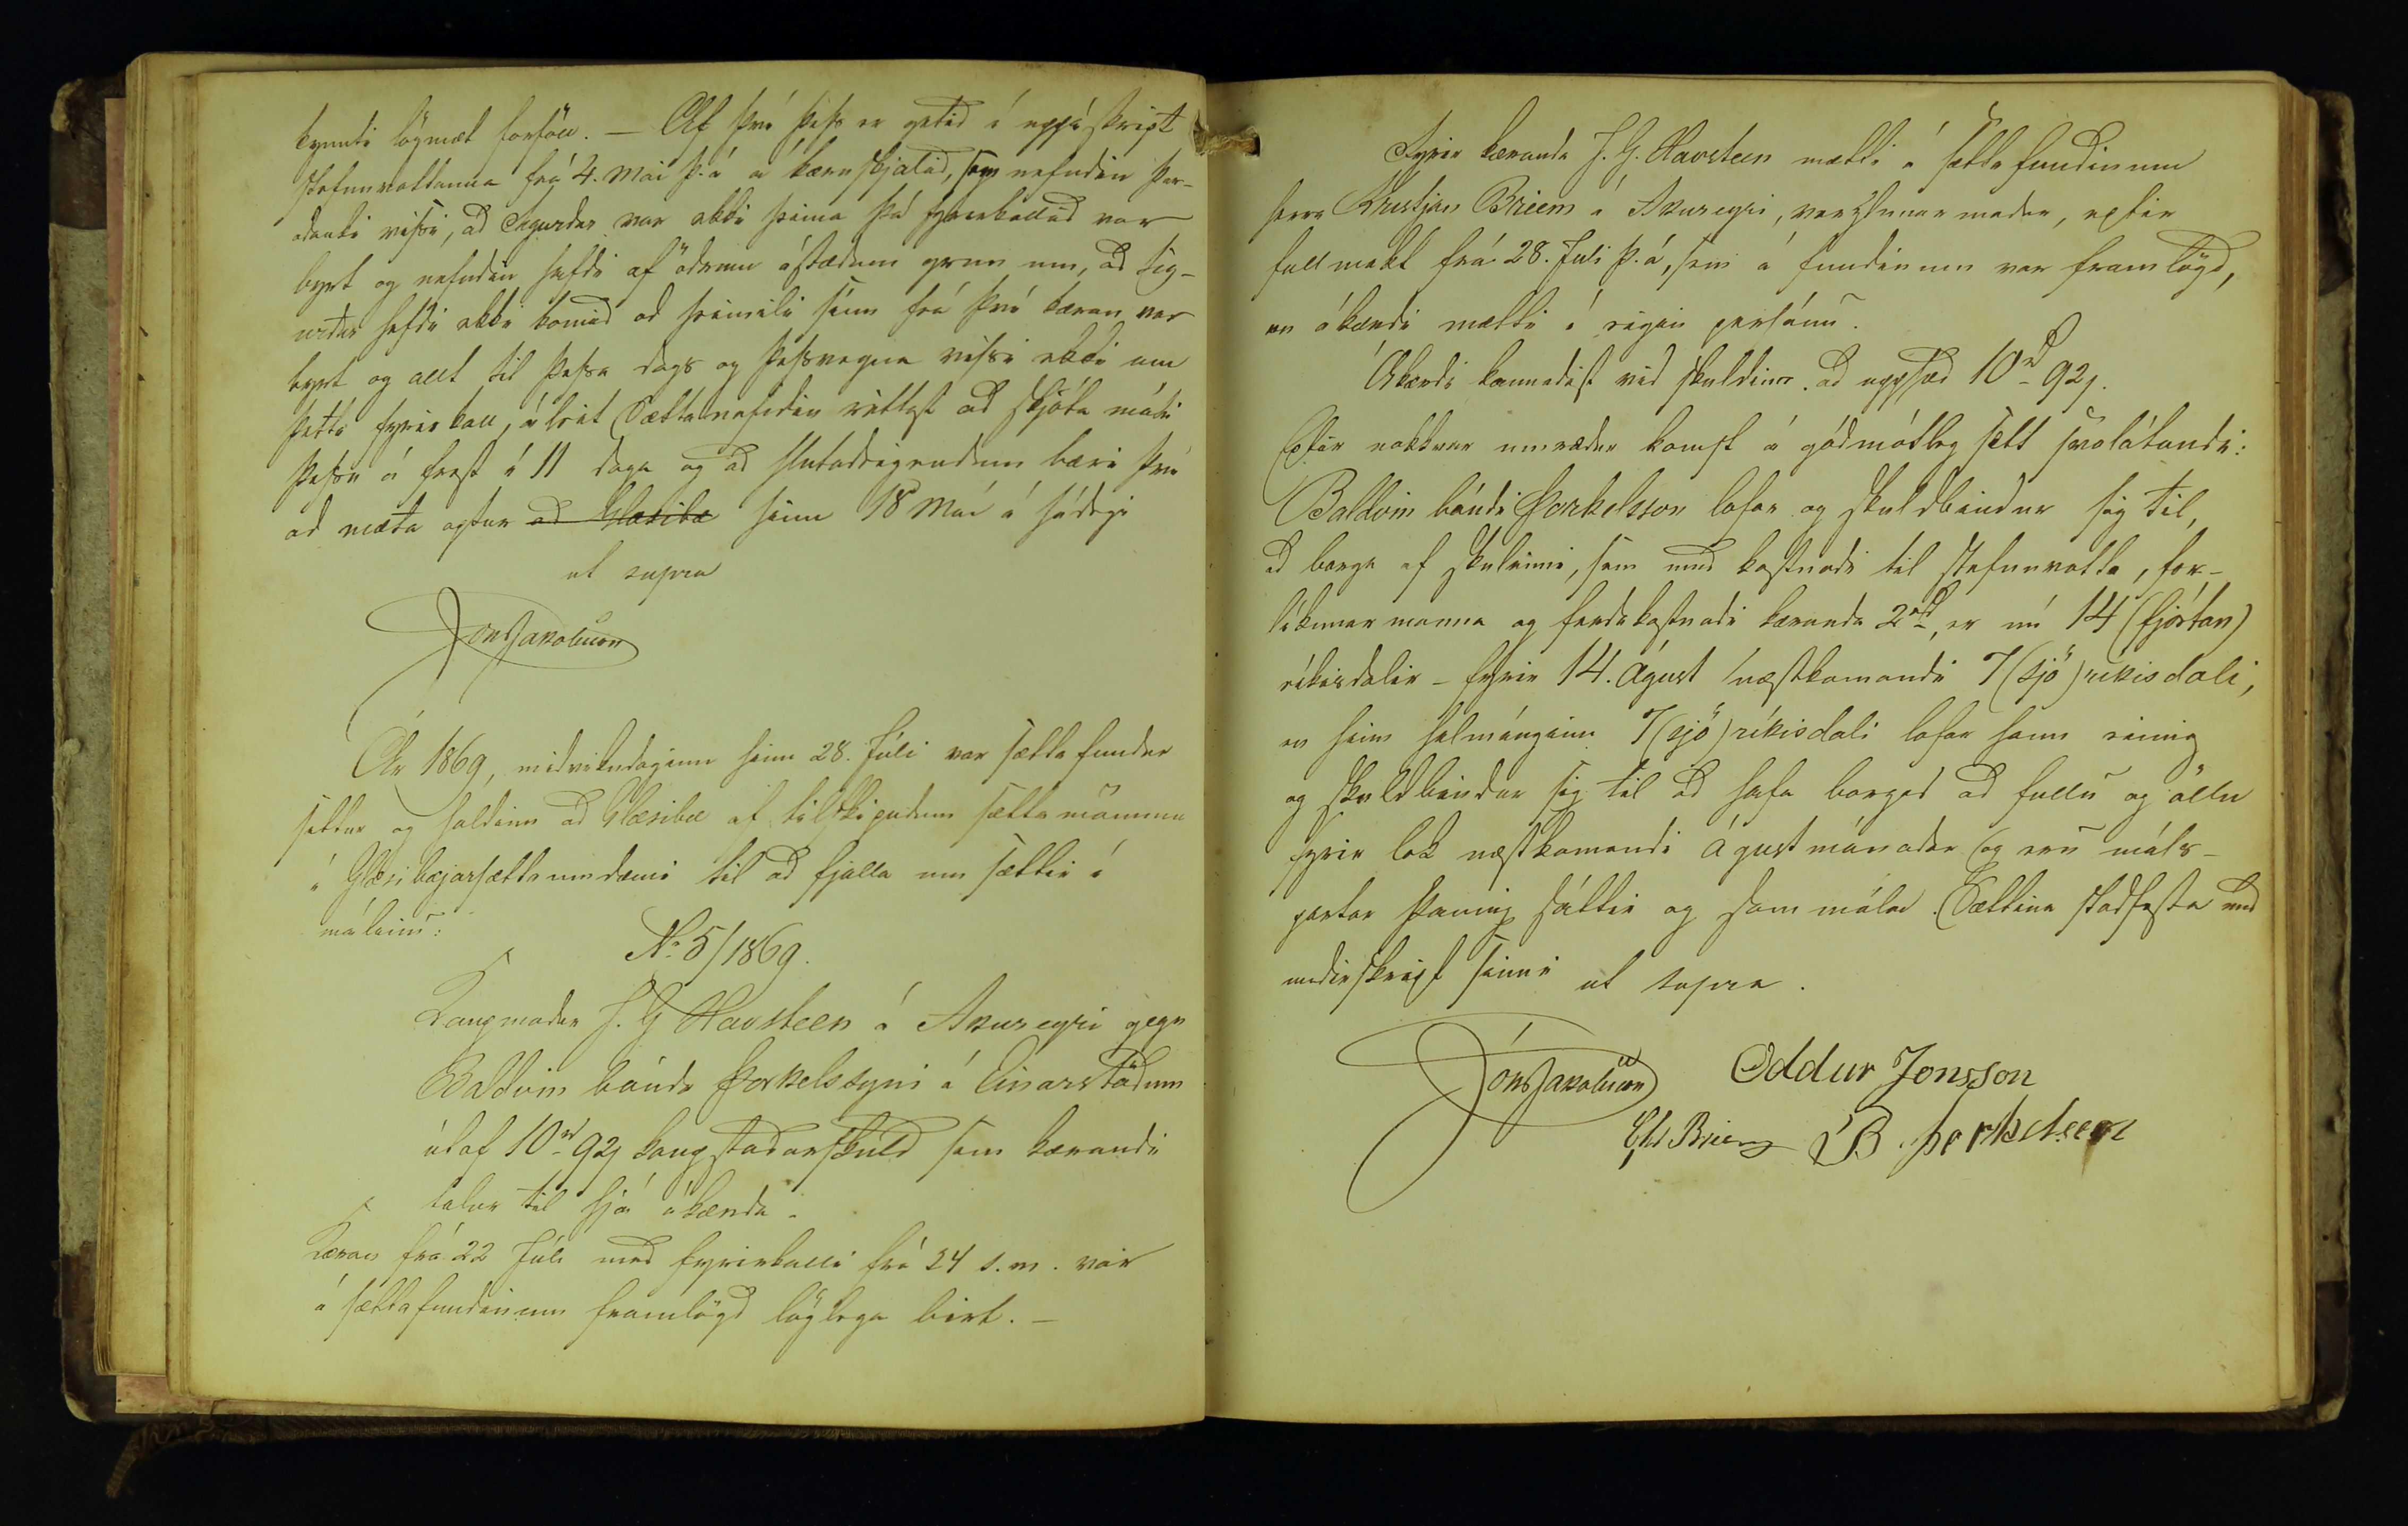 kynnti lögmæt forföll. — Af því þess er getid í uppáskript
stefnuvottanna frá 4. Mai þ.á á kæruskjalid, sem nefndin þar-
ad Sigurdur var ekki heima þá fyrirkallid var
byrt og nefndin hafdi af ödrum ástædum grun um, ad Sig-
urdur hafdi ekki komid ad heimili sínu frá því kæran var
byrt og allt til þessa dags og þessvegna vissi ekki um
þetta fyrirkall, áleit Sættanefndin réttast ad skjóta máli
þessu á frest í 11 daga og ad hlutadeigendum bæri því
ad mæta aptur ad Glæsibæ hinn 18 Maí á hádegi
ut supra
Jón Jakobsson
Ár 1869, midvikudaginn hinn 28. Júli var sættafundur
settur og haldinn ad Glæsibæ af tilskipudum sættamönnum
í Glæsibæjarsættaumdæmi til ad fjalla um sættir í
málinu:
No 5/1869.
Kaupmadur J. G Havsteen á Akureyri gegn
Baldvin bónda Þorkelssyni á Einarstödum
útaf 10rd 92 kaupstadarskuld sem kærandi
telur til hjá ákærda.
Kæran frá 22 Júli med fyrirkalli frá 24 s.m. var
á sættafundinum framlögd löglega birt. —
Fyrir kæranda J. G. Havsteen mætti á sættafundinum
herra Kristján Briem á Akureyri, verzlunarmadur, eptir
fullmakt frá 28. Juli þ.á, sem á fundinum var framlögd,
en ákærdi mætti í eigin persónu.
Ákærdi kannadist vid skuldina ad upphæd 10rd 92.
Eptir nokkrar umrædur komst á gódmótleg sætt svolátandi:
Baldvin bóndi Þorkelsson lofar og skuldbindur sig til,
ad borga af skuldinni, sem med kostnadi til stefnuvotta, for-
líkunarmanna og ferdakostnadi kæranda 2rd, er nú 14 (fjórtan)
ríkisdalir – fyrir 14. Ágúst næstkomandi 7 (sjö) ríkisdali,
en hinn helmínginn 7 (sjö) ríkisdali lofar hann einnig
og skuldbindur sig til ad hafa borgad ad fullu og öllu
fyrir lok næstkomandi Ágústmánadar og eru máls-
partar þannig sáttir og sammála. Sættina stadfesta med
undirskript sinni ut supra.
Jón Jakobsson Oddur Jonsson
Chr Briem B. Þorkelsson